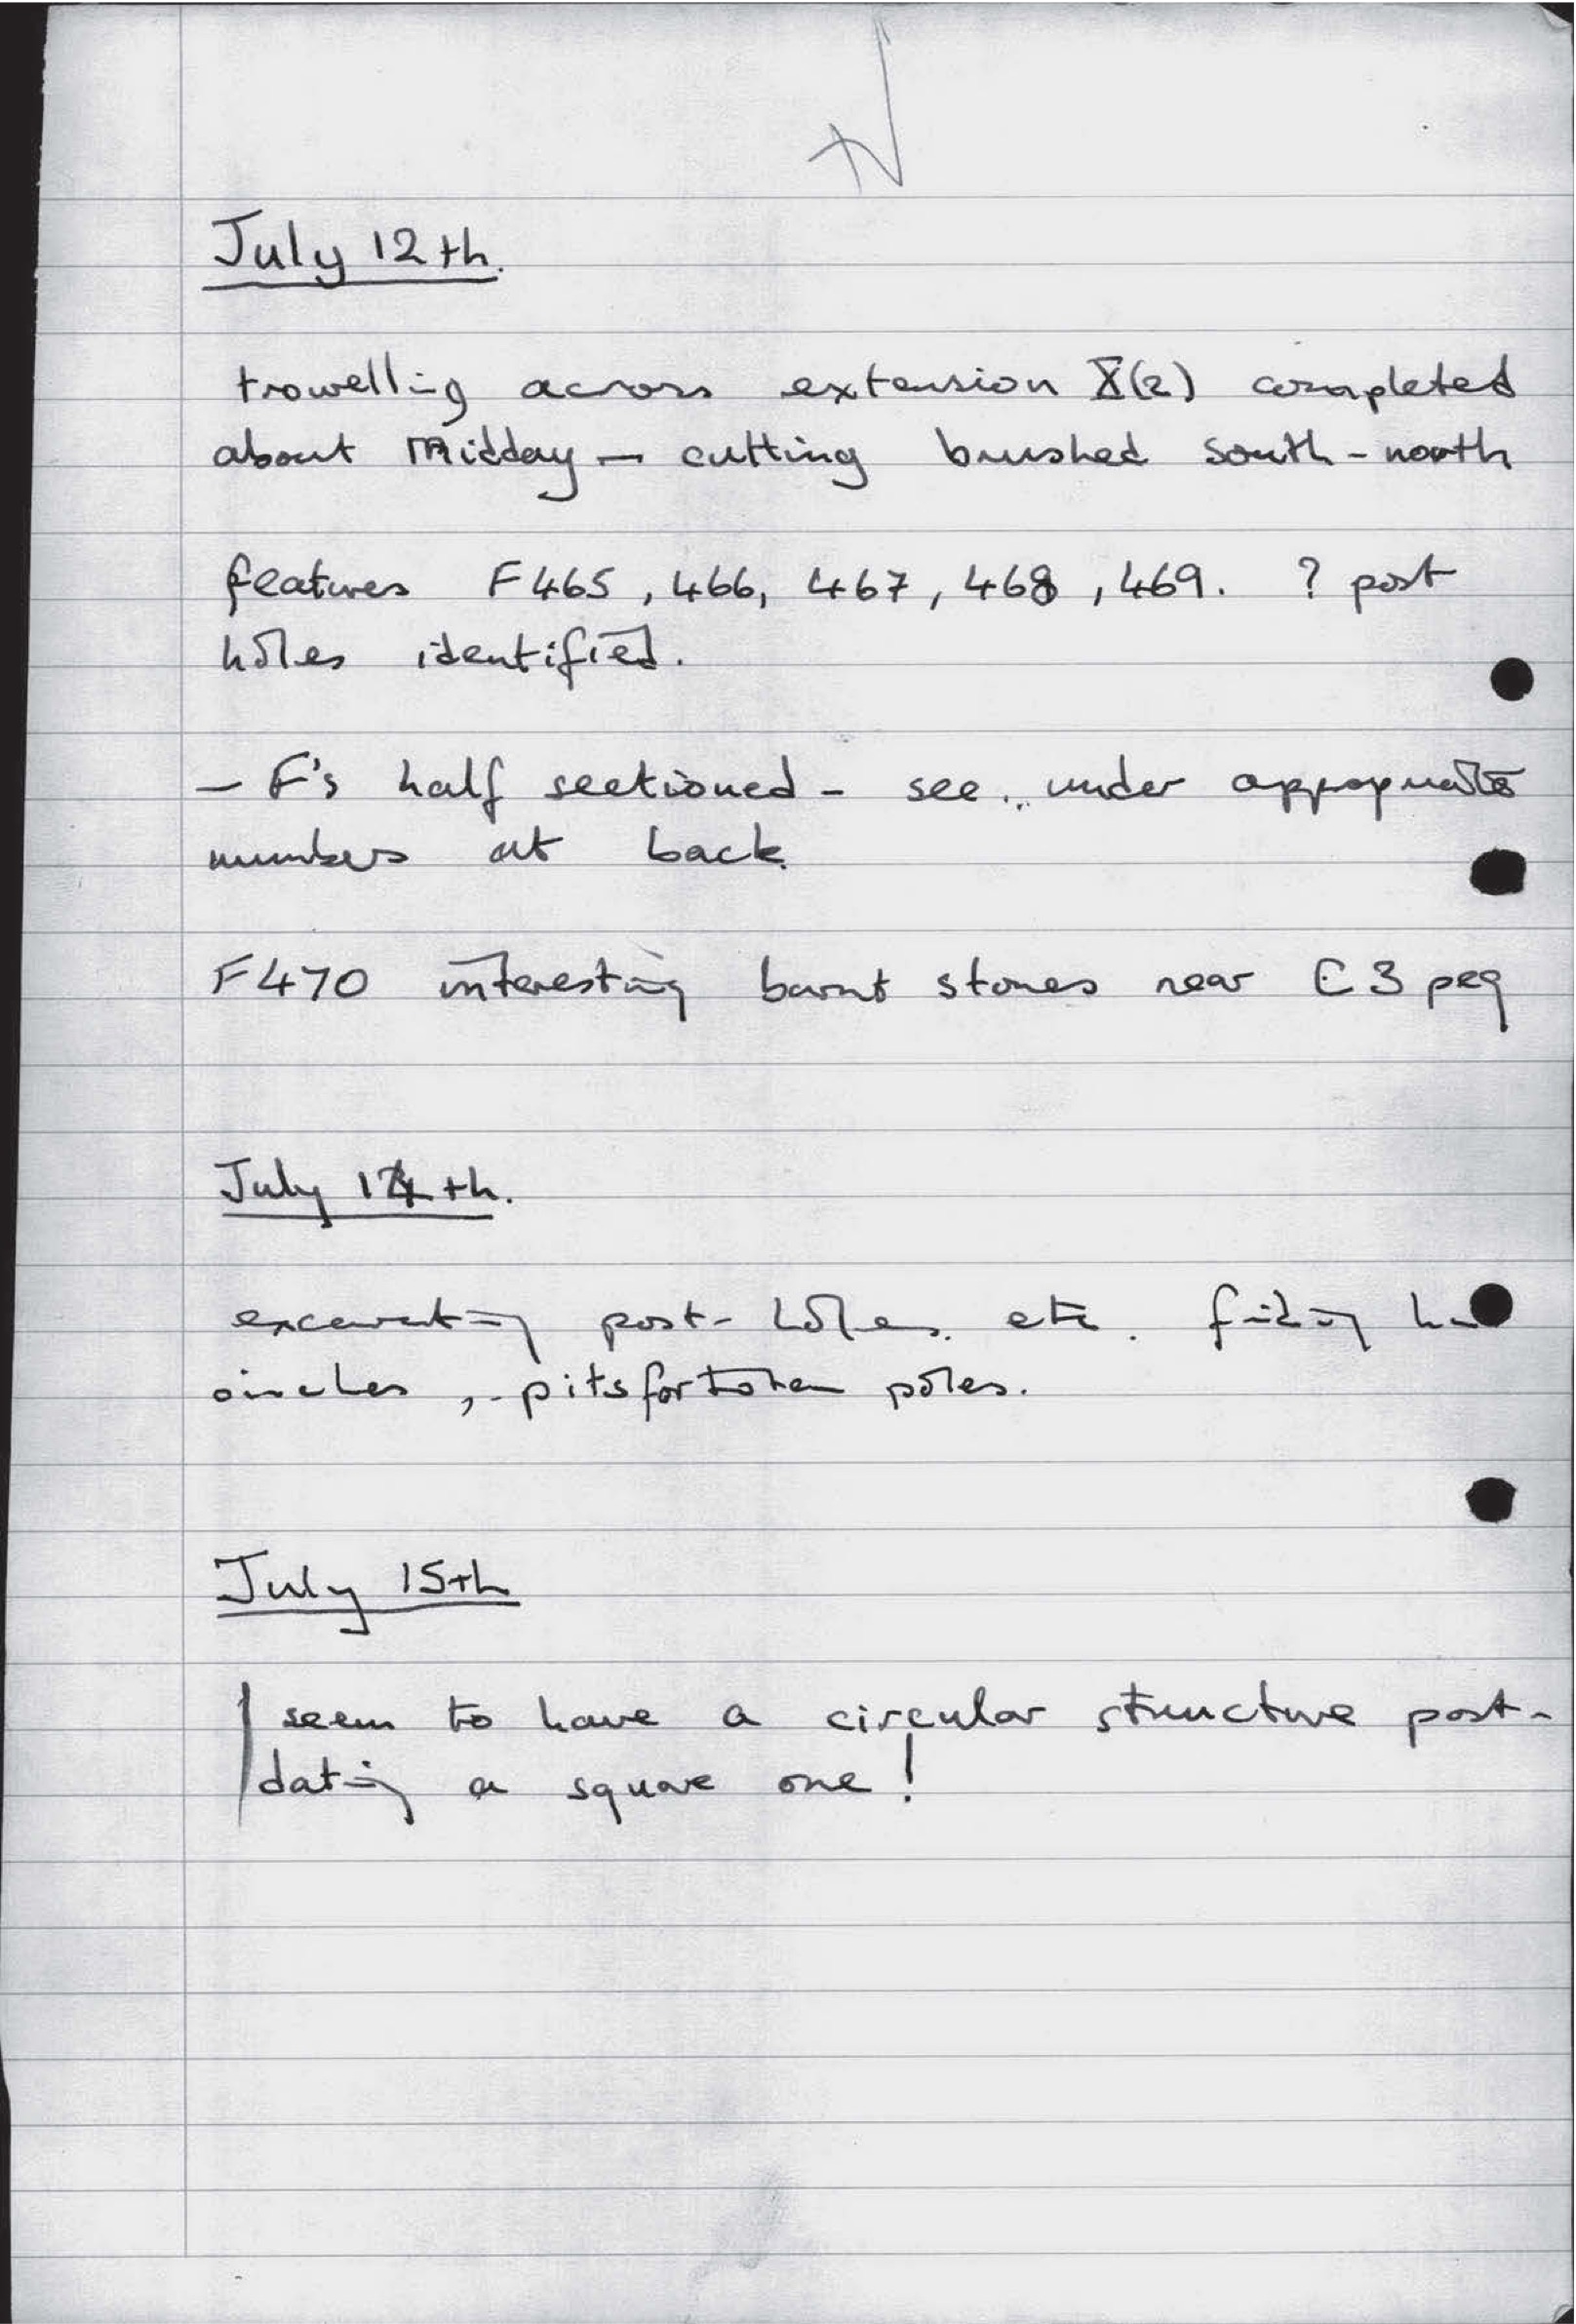 July 12th.
trowelling across extension X(2) completed
about Midday — cutting brushed south - north
features F465, 466, 467, 468, 469. ? post
holes identified.
— F's half sectioned - see under appropriate
numbers at back.
F470 interesting burnt stones near C3 peg
July 14th.
excavating post-holes. etc. finding
circles, - pits for totem poles.
July 15th
seem to have a circular structure post-
dating a square one!